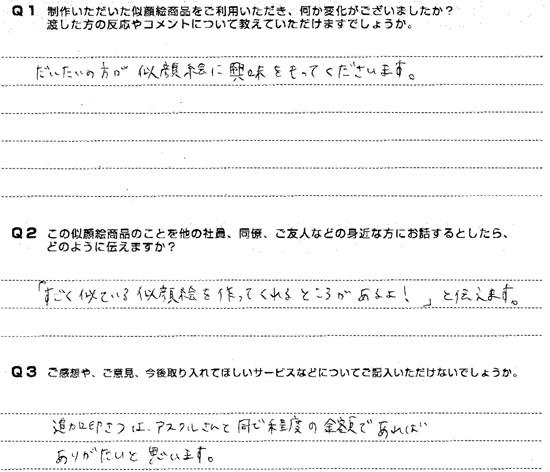 Q1 制作いただいた似顔絵商品をご利用いただき、何か変化がございましたか？
渡した方の反応やコメントについて教えていただけますでしょうか。
だいたいの方が似顔絵に興味をもってくださいます。
Q2 この似顔絵商品のことを他の社員、同僚、ご友人などの身近な方にお話するとしたら、
どのように伝えますか？
「すごく似ている似顔絵を作ってくれるところがあるよ！」と伝えます。
Q3 ご感想や、ご意見、今後取り入れてほしいサービスなどについてご記入いただけないでしょうか。
追加印さつは、アスクルさんと同じ程度の金額であれば
ありがたいと思います。